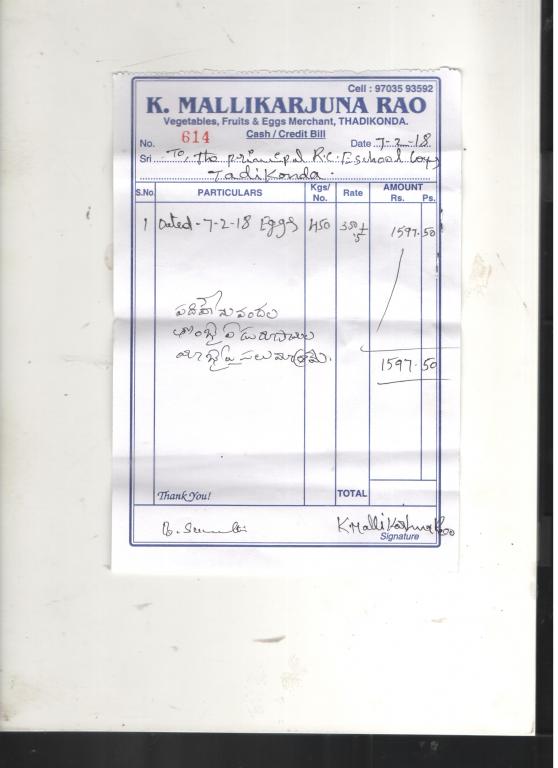 Cell : 97035 93592
K. MALLIKARJUNA RAO
Vegetables, Fruits & Eggs Merchant, THADIKONDA.
Cash / Credit Bill
No. 614 Date 7-2-18
Sri To, the principal R.C. E. school
Tadikonda.
S.No. PARTICULARS Kgs/ No. Rate AMOUNT Rs. Ps.
1 Dated-7-2-18 Eggs 450 1597.50
పదిహేను వందల
తొంభై ఏడు రూపాయల
యాభై పైసలు మాత్రమే.
1597.50
Thank You! TOTAL
K Mallikarjuna Rao
Signature